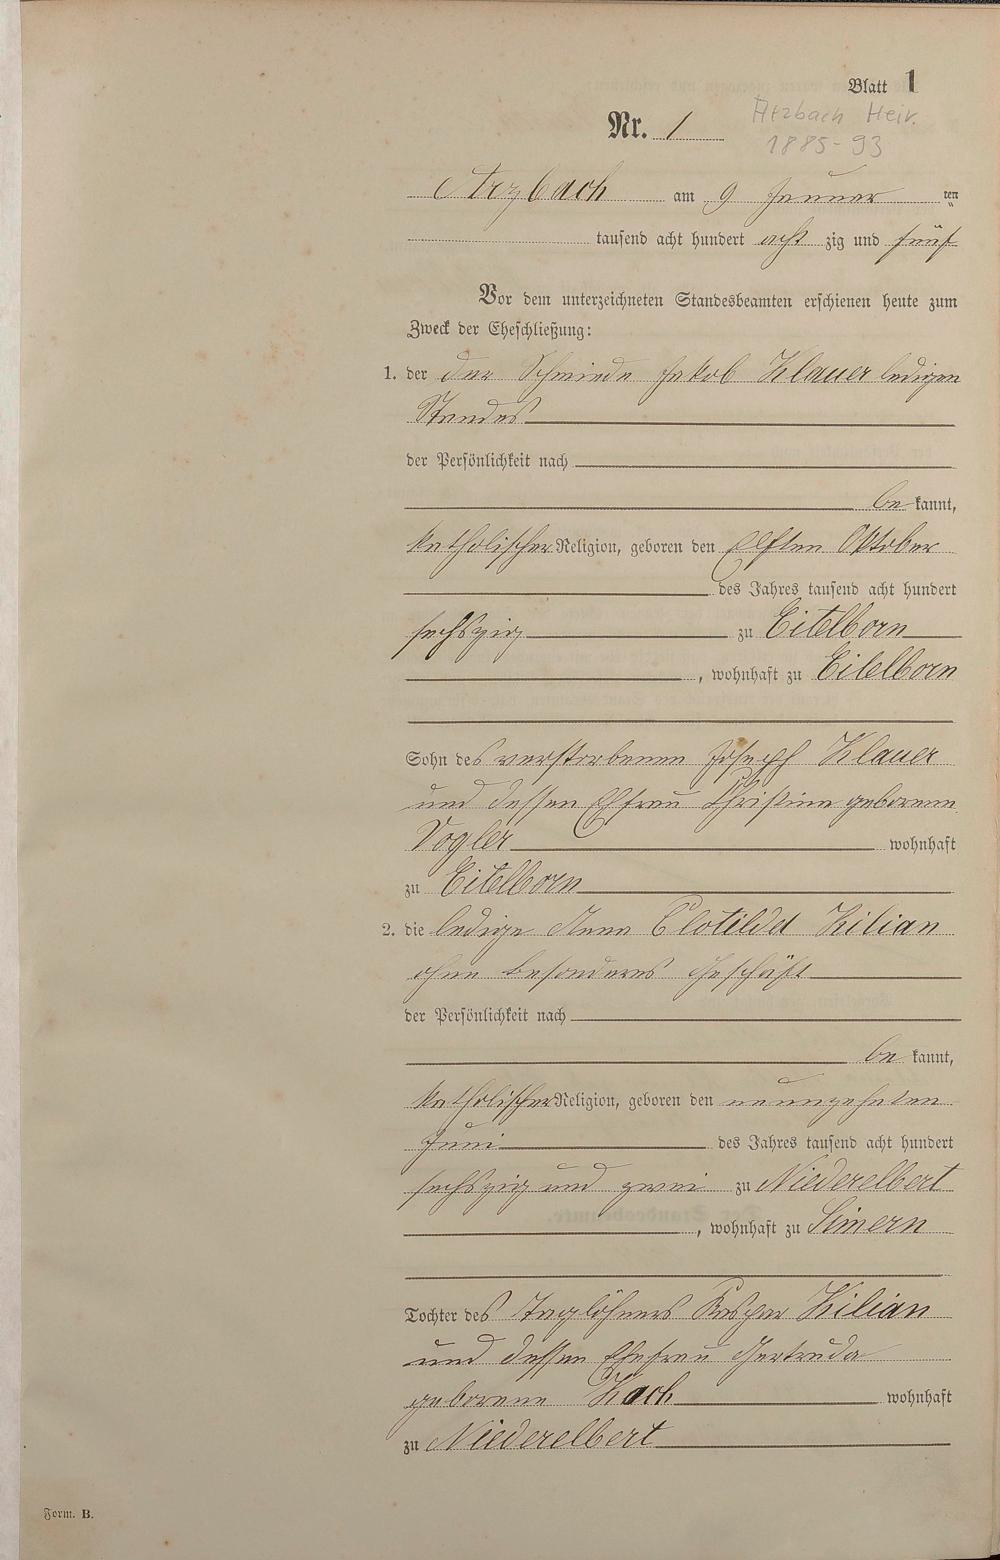 Blatt 1
Arzbach Heir.
Nr. 1
1885-93
Arzbach am 9 Januar ten
tausend acht hundert acht zig und fünf
Vor dem unterzeichneten Standesbeamten erschienen heute zum
Zweck der Eheschließung:
1. der der Schmiede Jakob Klauer ledigen
Standes
der Persönlichkeit nach
be kannt,
katholischer Religion, geboren den Elften Oktober
des Jahres tausend acht hundert
sechszig zu Eitelborn
, wohnhaft zu Eitelborn
Sohn des verstorbenen Joseph Klauer
und dessen Ehfrau Christina geborene
Vogler wohnhaft
zu Eitelborn
2. die ledige Anna Clotilda Kilian
ohne besonderes Geschäft
der Persönlichkeit nach
be kannt,
katholischer Religion, geboren den neunzehnten
Juni des Jahres tausend acht hundert
sechszig und zwei zu Niederelbert
, wohnhaft zu Simern
Tochter des Taglöhners Kaspar Kilian
und dessen Ehefrau Gertruda
geborene Hach wohnhaft
zu Niederelbert
Form. B.